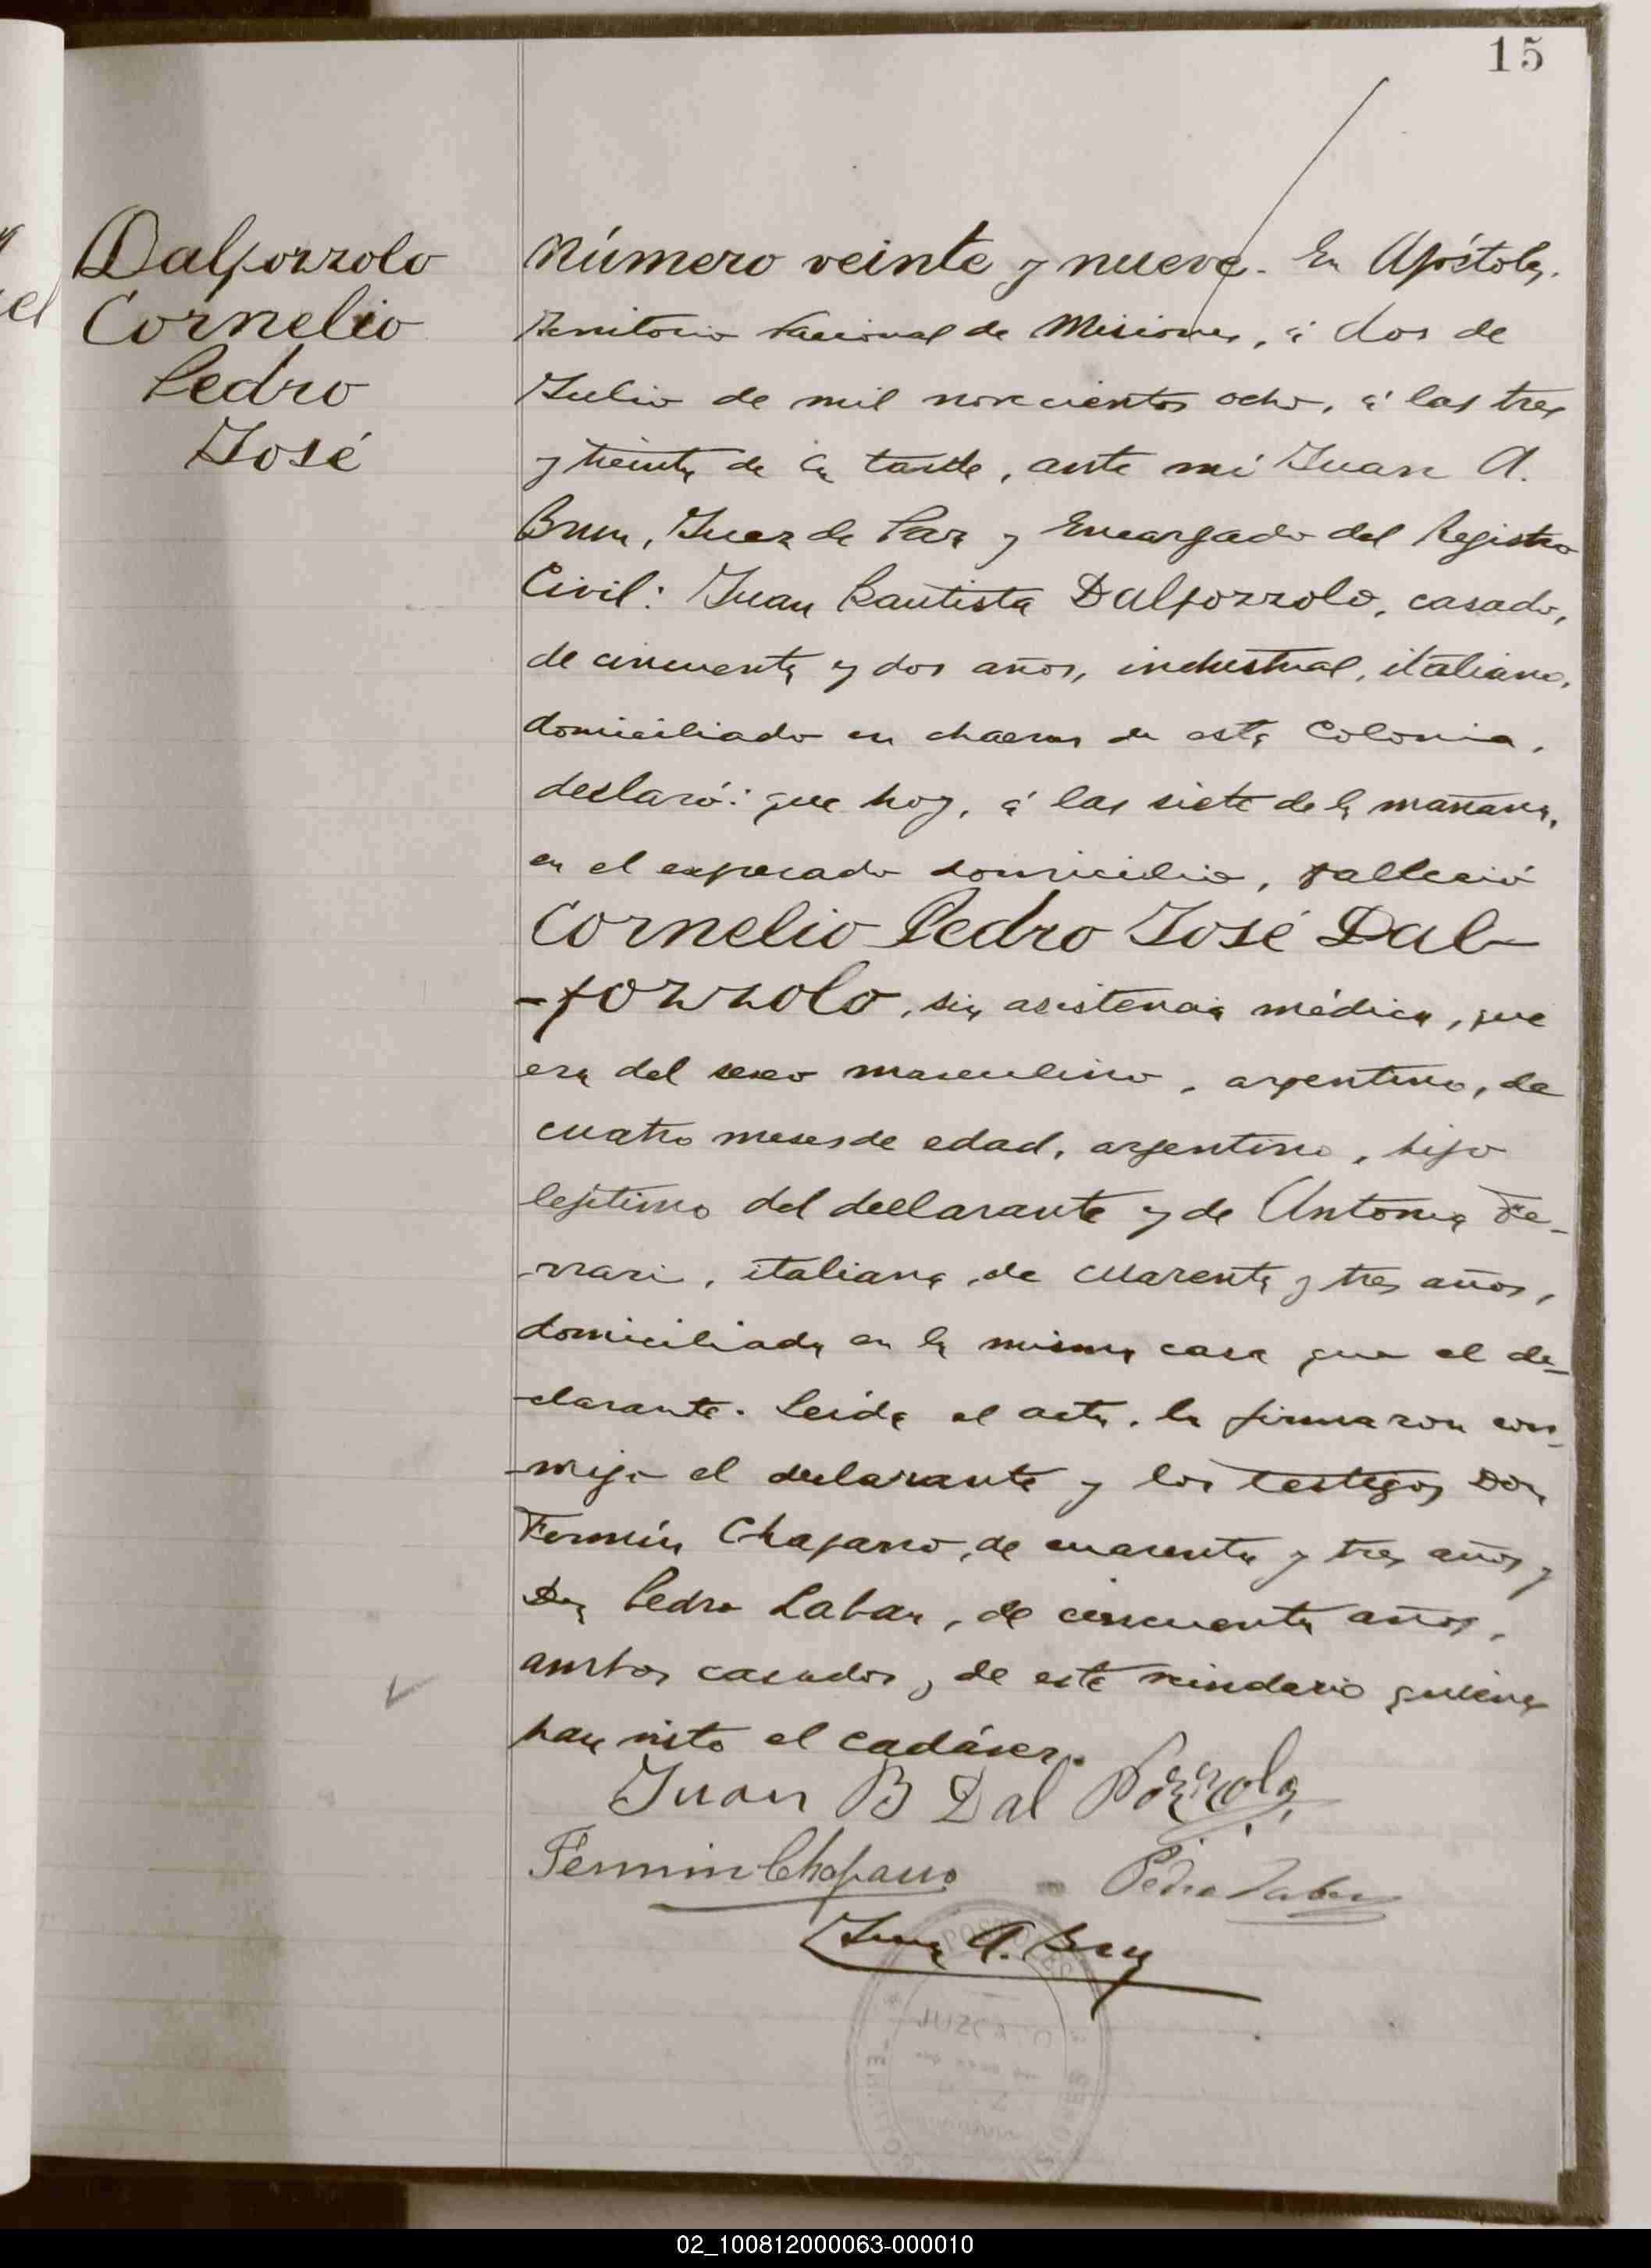 15
Dalpozzolo
Cornelio
Pedro
José
Número veinte y nueve. En Apóstoles,
Territorio Nacional de Misiones, á dos de
Julio de mil novecientos ocho, á las tres
y treinta de la tarde, ante mi Juan A.
Brun, Juez de Paz y Encargado del Registro
Civil: Juan Bautista Dalpozzolo, casado,
de cincuenta y dos años, industrial, italiano,
domiciliado en chacras de esta Colonia,
declaró: que hoy, á las siete de la mañana,
en el expresado domicilio, falleció
Cornelio Pedro José Dal-
-pozzolo, sin asistencia médica, que
era del sexo masculino, argentino, de
cuatro meses de edad, argentino, hijo
lejitimo del declarante y de Antonia Fe-
-rrari, italiana, de cuarenta y tres años,
domiciliada en la misma casa que el de-
-clarante. Leida el acta, la firmaron con-
-migo el declarante y los testigos Don
Fermín Chaparro, de cuarenta y tres años y
Don Pedro Laban, de cincuenta años,
ambos casados, de este vindario quienes
han visto el cadáver.
Juan B Dal Pozzolo
Fermin Chaparro Pedro Laban
Juan A. Brun
02_100812000063-000010